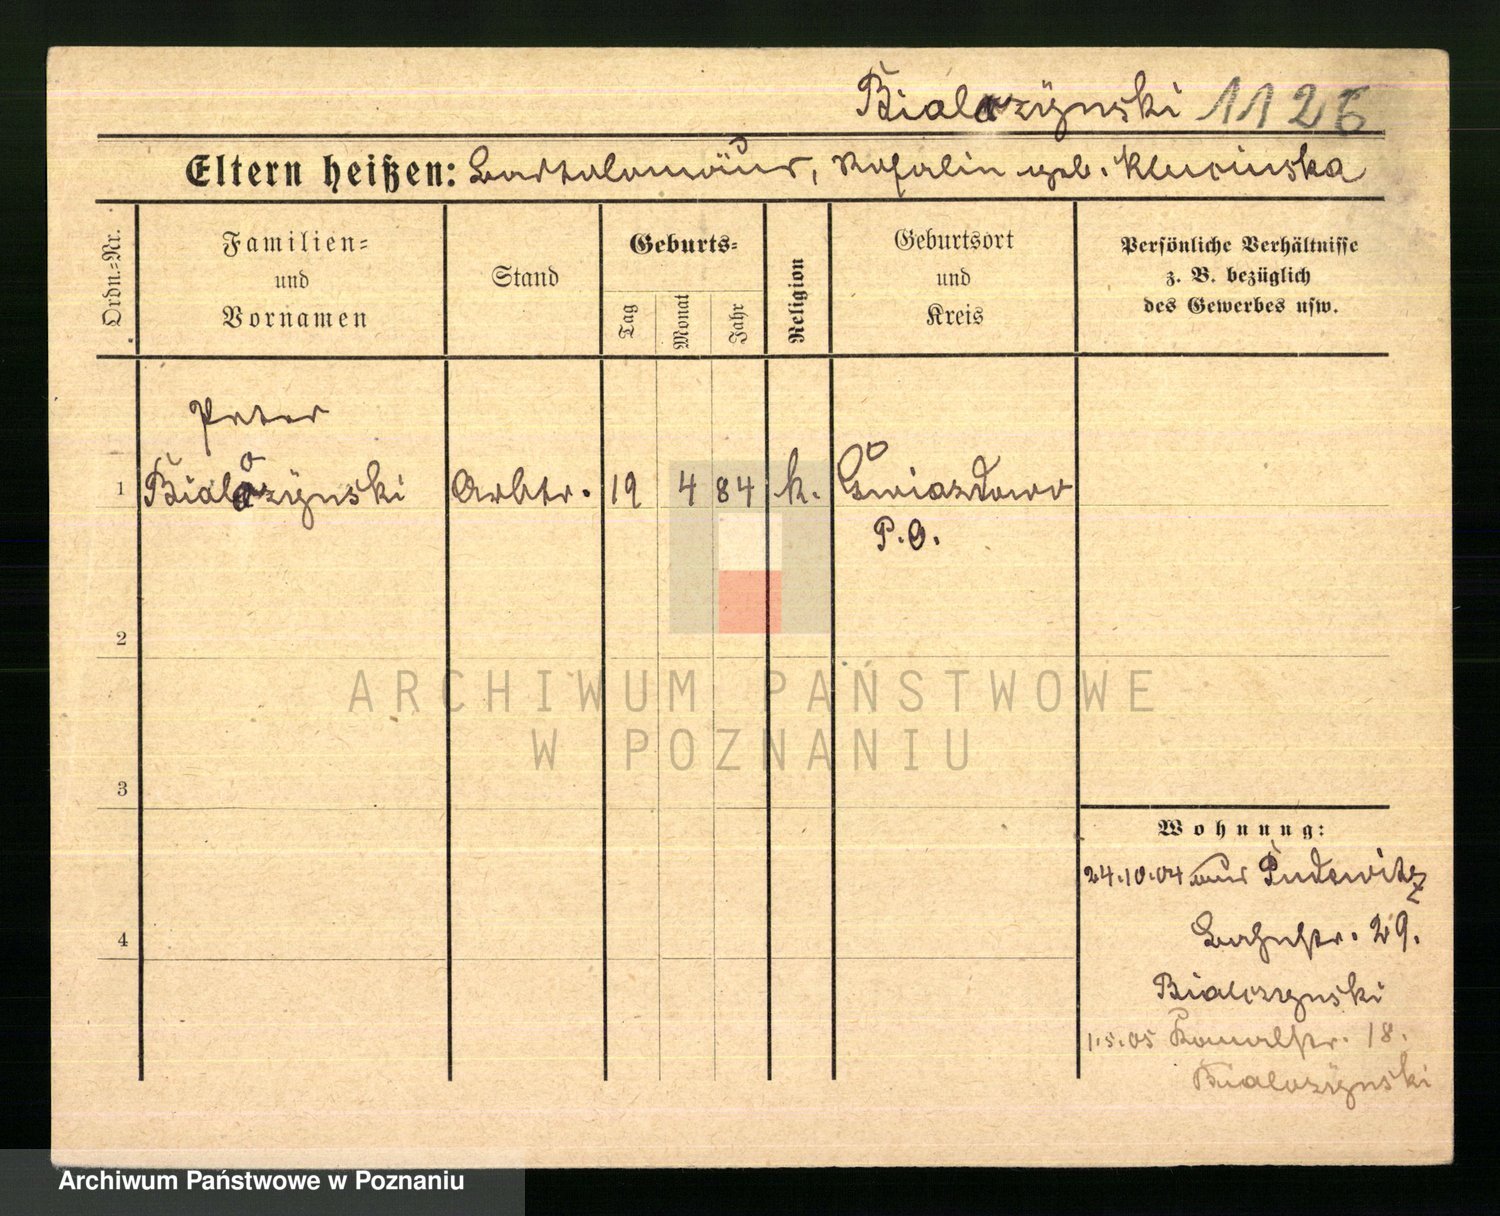 Bialozÿnski 1126
Eltern heißen: Bartolomäus, Rosalin geb. Klucinska
Ordn.=Nr.
Familien=
und
Vornamen
Stand
Geburts=
Tag
Monat
Jahr
Religion
Geburtsort
und
Kreis
Persönliche Verhältnisse
z. B. bezüglich
des Gewerbes usw.
Peter
1 Bialozÿnski Arbtr. 19 4 84 k. Gwiazdowo
P.O.
2
3
4
ARCHIWUM PAŃSTWOWE
W POZNANIU
Wohnung:
24.10.04 aus Pudewitz
Bahnstr. 29.
Bialozynski
1.5.05 18.
Bialozÿnski
Archiwum Państwowe w Poznaniu